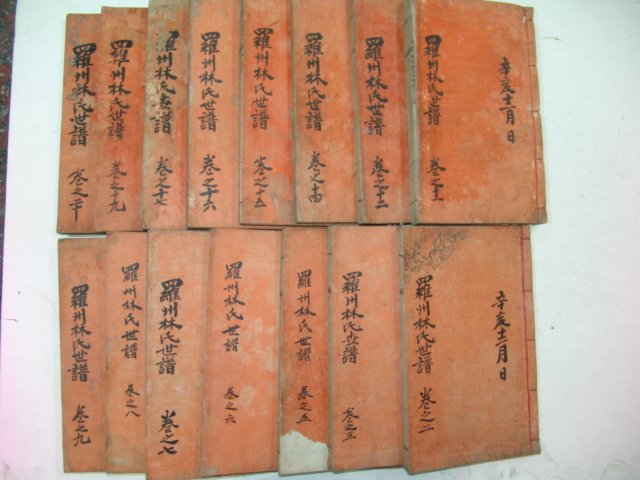 辛亥十一月日
羅州林氏世譜 卷之十一
羅州林氏世譜 卷之十二
羅州林氏世譜 卷之十四
羅州林氏世譜 卷之十五
羅州林氏世譜 卷之十六
羅州林氏世譜 卷之十七
羅州林氏世譜 卷之十九
羅州林氏世譜 卷之二十
辛亥十一月日
羅州林氏世譜 卷之二
羅州林氏世譜 卷之三
羅州林氏世譜 卷之五
羅州林氏世譜 卷之六
羅州林氏世譜 卷之七
羅州林氏世譜 卷之八
羅州林氏世譜 卷之九